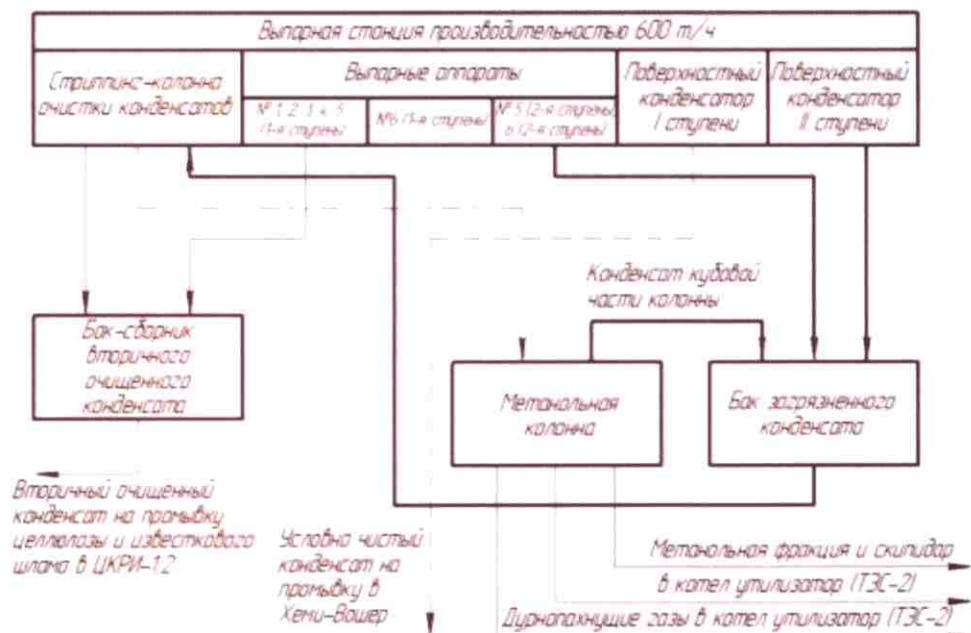 Выпарная станция производительностью 600 т/ч
Стриппинг-колонна
очистки конденсатов
Выпарные аппараты
№ 1, 2, 3, 4, 5
(1-я ступень)
№6 (1-я ступень)
№ 5 (2-я ступень),
6 (2-я ступень)
Поверхностный
конденсатор
I ступени
Поверхностный
конденсатор
II ступени
Конденсат кубовой
части колонны
Бак-сборник
вторичного
очищенного
конденсата
Метанольная
колонна
Бак загрязненного
конденсата
Вторичный очищенный
конденсат на промывку
целлюлозы и известкового
шлама в ЦКРИ-1,2
Условно чистый
конденсат на
промывку в
Хеми-Вошер
Метанольная фракция и скипидар
в котел утилизатор (ТЭС-2)
Дурнопахнущие газы в котел утилизатор (ТЭС-2)